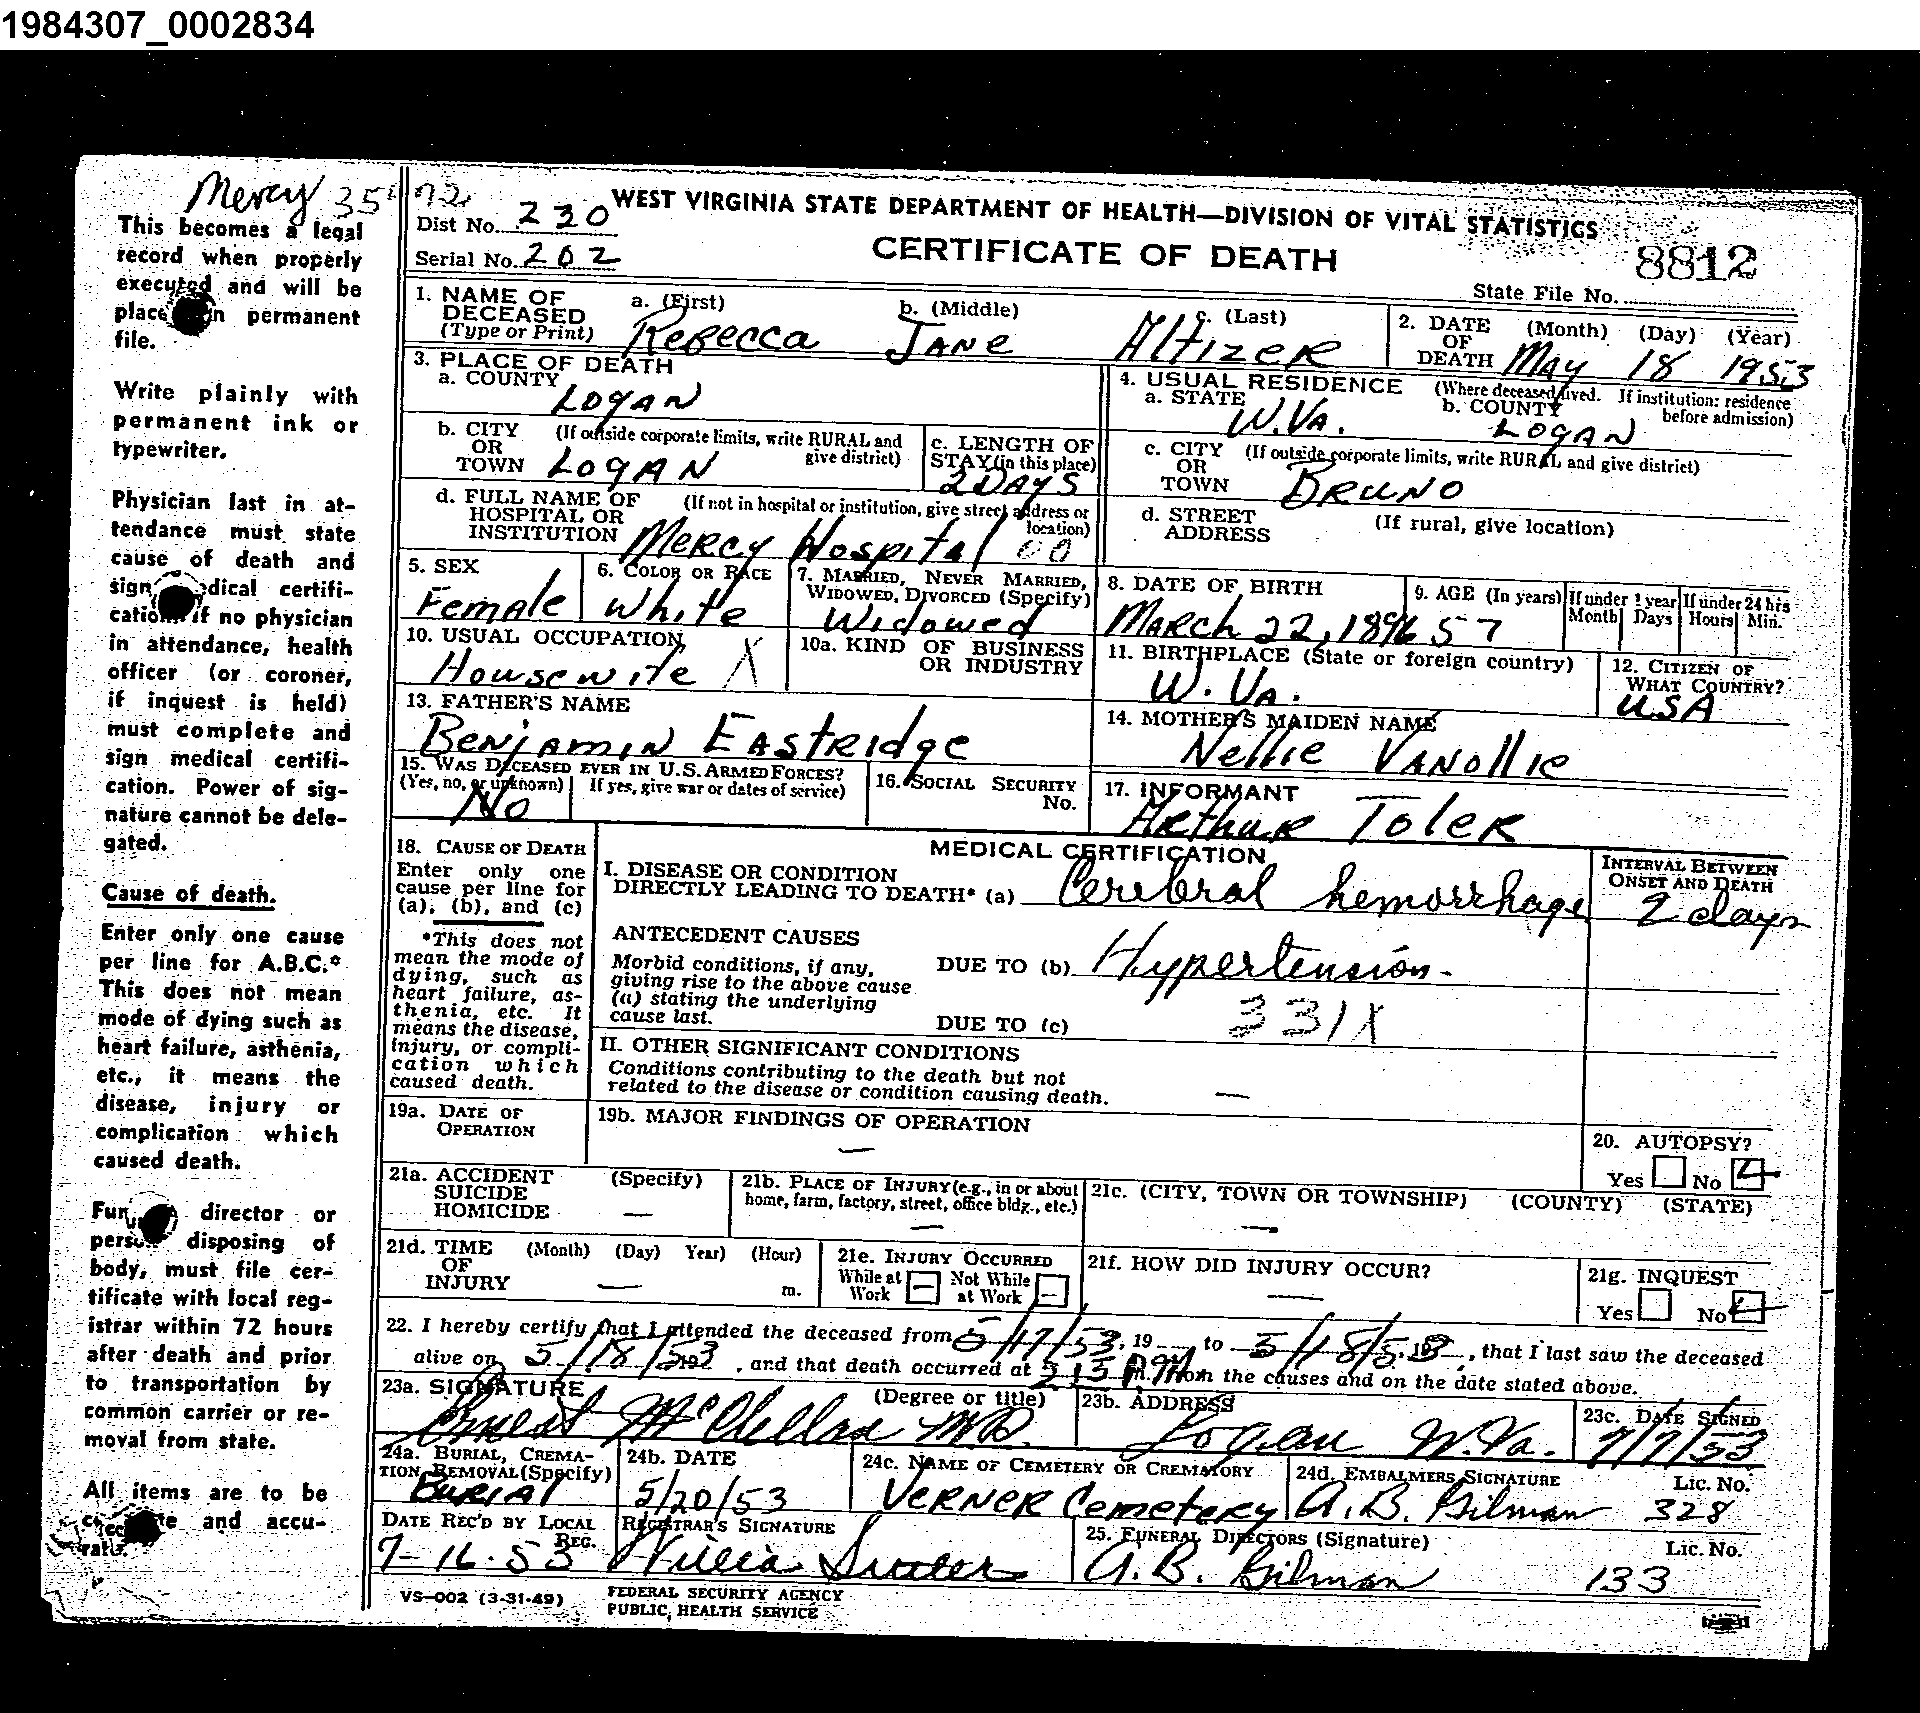 1984307_0002834
Mercy 35 72
This becomes a legal
record when properly
executed and will be
place in permanent
file.
Write plainly with
permanent ink or
typewriter.
Physician last in at-
tendance must state
cause of death and
sign medical certifi-
cation. If no physician
in attendance, health
officer (or coroner,
if inquest is held)
must complete and
sign medical certifi-
cation. Power of sig-
nature cannot be dele-
gated.
Cause of death.
Enter only one cause
per line for A.B.C.*
This does not mean
mode of dying such as
heart failure, asthenia,
etc., it means the
disease, injury or
complication which
caused death.
director or
disposing of
body, must file cer-
tificate with local reg-
istrar within 72 hours
after death and prior
to transportation by
common carrier or re-
moval from state.
All items are to be
and accu-
rate.
WEST VIRGINIA STATE DEPARTMENT OF HEALTH—DIVISION OF VITAL STATISTICS
Dist No. 230
CERTIFICATE OF DEATH
Serial No. 202
8812
State File No.
1. NAME OF DECEASED (Type or Print) a. (First) b. (Middle) c. (Last)
Rebecca Jane Altizer
2. DATE OF DEATH (Month) (Day) (Year)
May 18 1953
3. PLACE OF DEATH
a. COUNTY Logan
4. USUAL RESIDENCE (Where deceased lived. If institution: residence before admission)
a. STATE W.Va. b. COUNTY Logan
b. CITY OR TOWN (If outside corporate limits, write RURAL and give district) Logan
c. LENGTH OF STAY (in this place) 2 Days
c. CITY OR TOWN (If outside corporate limits, write RURAL and give district) Bruno
d. FULL NAME OF HOSPITAL OR INSTITUTION (If not in hospital or institution, give street address or location) Mercy Hospital 00
d. STREET ADDRESS (If rural, give location)
5. SEX Female
6. COLOR OR RACE White
7. MARRIED, NEVER MARRIED, WIDOWED, DIVORCED (Specify) Widowed
8. DATE OF BIRTH March 22, 1896
9. AGE (In years) 57
If under 1 year Month Days
If under 24 hrs Hours Min.
10. USUAL OCCUPATION Housewife X
10a. KIND OF BUSINESS OR INDUSTRY
11. BIRTHPLACE (State or foreign country) W. Va.
12. CITIZEN OF WHAT COUNTRY? USA
13. FATHER'S NAME Benjamin Eastridge
14. MOTHER'S MAIDEN NAME Nellie Vanollie
15. WAS DECEASED EVER IN U.S. ARMED FORCES? (Yes, no, or unknown) No If yes, give war or dates of service)
16. SOCIAL SECURITY No.
17. INFORMANT Arthur Toler
18. CAUSE OF DEATH
Enter only one
cause per line for
(a), (b), and (c)
*This does not
mean the mode of
dying, such as
heart failure, as-
thenia, etc. It
means the disease,
injury, or compli-
cation which
caused death.
MEDICAL CERTIFICATION
I. DISEASE OR CONDITION
DIRECTLY LEADING TO DEATH* (a) Cerebral hemorrhage
INTERVAL BETWEEN ONSET AND DEATH
2 days
ANTECEDENT CAUSES
Morbid conditions, if any,
giving rise to the above cause
(a) stating the underlying
cause last.
DUE TO (b) Hypertension-
DUE TO (c) 331X
II. OTHER SIGNIFICANT CONDITIONS
Conditions contributing to the death but not
related to the disease or condition causing death. —
19a. DATE OF OPERATION
19b. MAJOR FINDINGS OF OPERATION —
20. AUTOPSY?
Yes No
21a. ACCIDENT SUICIDE HOMICIDE (Specify) —
21b. PLACE OF INJURY (e.g., in or about home, farm, factory, street, office bldg., etc.) —
21c. (CITY, TOWN OR TOWNSHIP) (COUNTY) (STATE) —
21d. TIME OF INJURY (Month) (Day) Year) (Hour) — m.
21e. INJURY OCCURRED
While at Work — Not While at Work —
21f. HOW DID INJURY OCCUR? —
21g. INQUEST
Yes No
22. I hereby certify that I attended the deceased from 5/17/53, 19 to 5/18/53, 19, that I last saw the deceased
alive on 5/18/53, 19, and that death occurred at m. from the causes and on the date stated above.
23a. SIGNATURE (Degree or title) Ernest McClellan MD.
23b. ADDRESS Logan W.Va.
23c. DATE SIGNED 7/7/53
24a. BURIAL, CREMATION REMOVAL (Specify) Burial
24b. DATE 5/20/53
24c. NAME OF CEMETERY OR CREMATORY Verner Cemetery
24d. EMBALMERS SIGNATURE A. B. Gilman Lic. No. 328
DATE REC'D BY LOCAL REG. 7-16-53
REGISTRAR'S SIGNATURE
25. FUNERAL DIRECTORS (Signature) A. B. Gilman Lic. No. 133
VS-002 (3-31-49)
FEDERAL SECURITY AGENCY
PUBLIC HEALTH SERVICE